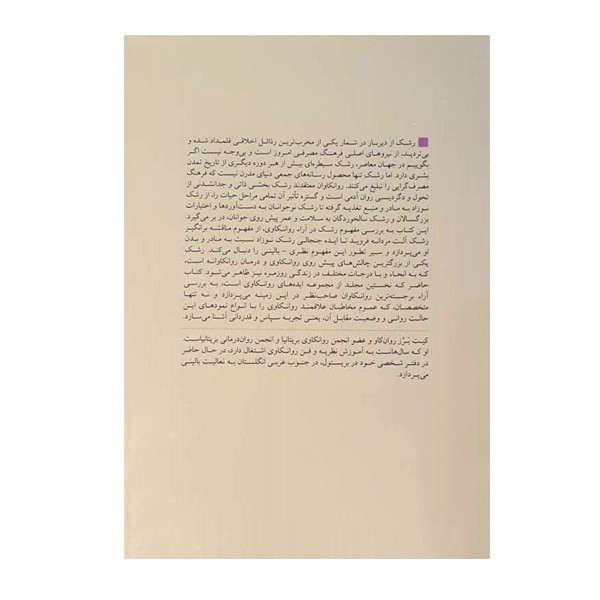 رشک از دیرباز در شمار یکی از مخرب‌ترین رذائل اخلاقی قلمداد شده و
بی‌تردید، از نیروهای اصلی فرهنگ مصرفی امروز است و بی‌وجه نیست اگر
بگوییم در جهان معاصر، رشک سیطره‌ای بیش از هر دوره دیگری از تاریخ تمدن
بشری دارد. اما رشک تنها محصول رسانه‌های جمعی دنیای مدرن نیست که فرهنگ
مصرف‌گرایی را تبلیغ می‌کنند. روانکاوان معتقدند رشک بخشی ذاتی و جدانشدنی از
تحول و دگردیسی روان آدمی است و گستره تأثیر آن تمامی مراحل حیات رن از رشک
نوزاد به مادر و منبع تغذیه گرفته تا رشک نوجوانان به دست‌آوردها و اختیارات
بزرگسالان و رشک سالخوردگان به سلامت و عمر پیش روی جوانان، در بر می‌گیرد.
این کتاب به بررسی مفهوم رشک در آراء روانکاوی، از مفهوم مناقشه برانگیز
رشک آلت مردانه فروید تا ایده جنجالی رشک نوزاد نسبت به مادر و بدن
او می‌پردازد و سیر تطور این مفهوم نظری - بالینی را دنبال می‌کند. رشک
یکی از بزرگترین چالش‌های پیش روی روانکاوی و درمان روانکاوانه است،
که به انحاء و با درجات مختلف در زندگی روزمره نیز ظاهر می‌شود. کتاب
حاضر که نخستین مجلد از مجموعه ایده‌های روانکاوی است، به بررسی
آراء برجسته‌ترین روانکاوان صاحب‌نظر در این زمینه می‌پردازد و نه تنها
متخصصان، که عموم مخاطبان علاقمند روانکاوی را با انواع نمودهای این
حالت روانی و وضعیت مقابل آن، یعنی تجربه سپاس و قدردانی آشنا می‌سازد.
کیت بَرُز روان‌کاو و عضو انجمن روانکاوی بریتانیا و انجمن روان‌درمانی بریتانیاست.
او که سال‌هاست به آموزش نظریه و فن روانکاوی اشتغال دارد، در حال حاضر
در دفتر شخصی خود در بریستول، در جنوب غربی انگلستان به فعالیت بالینی
می‌پردازد.